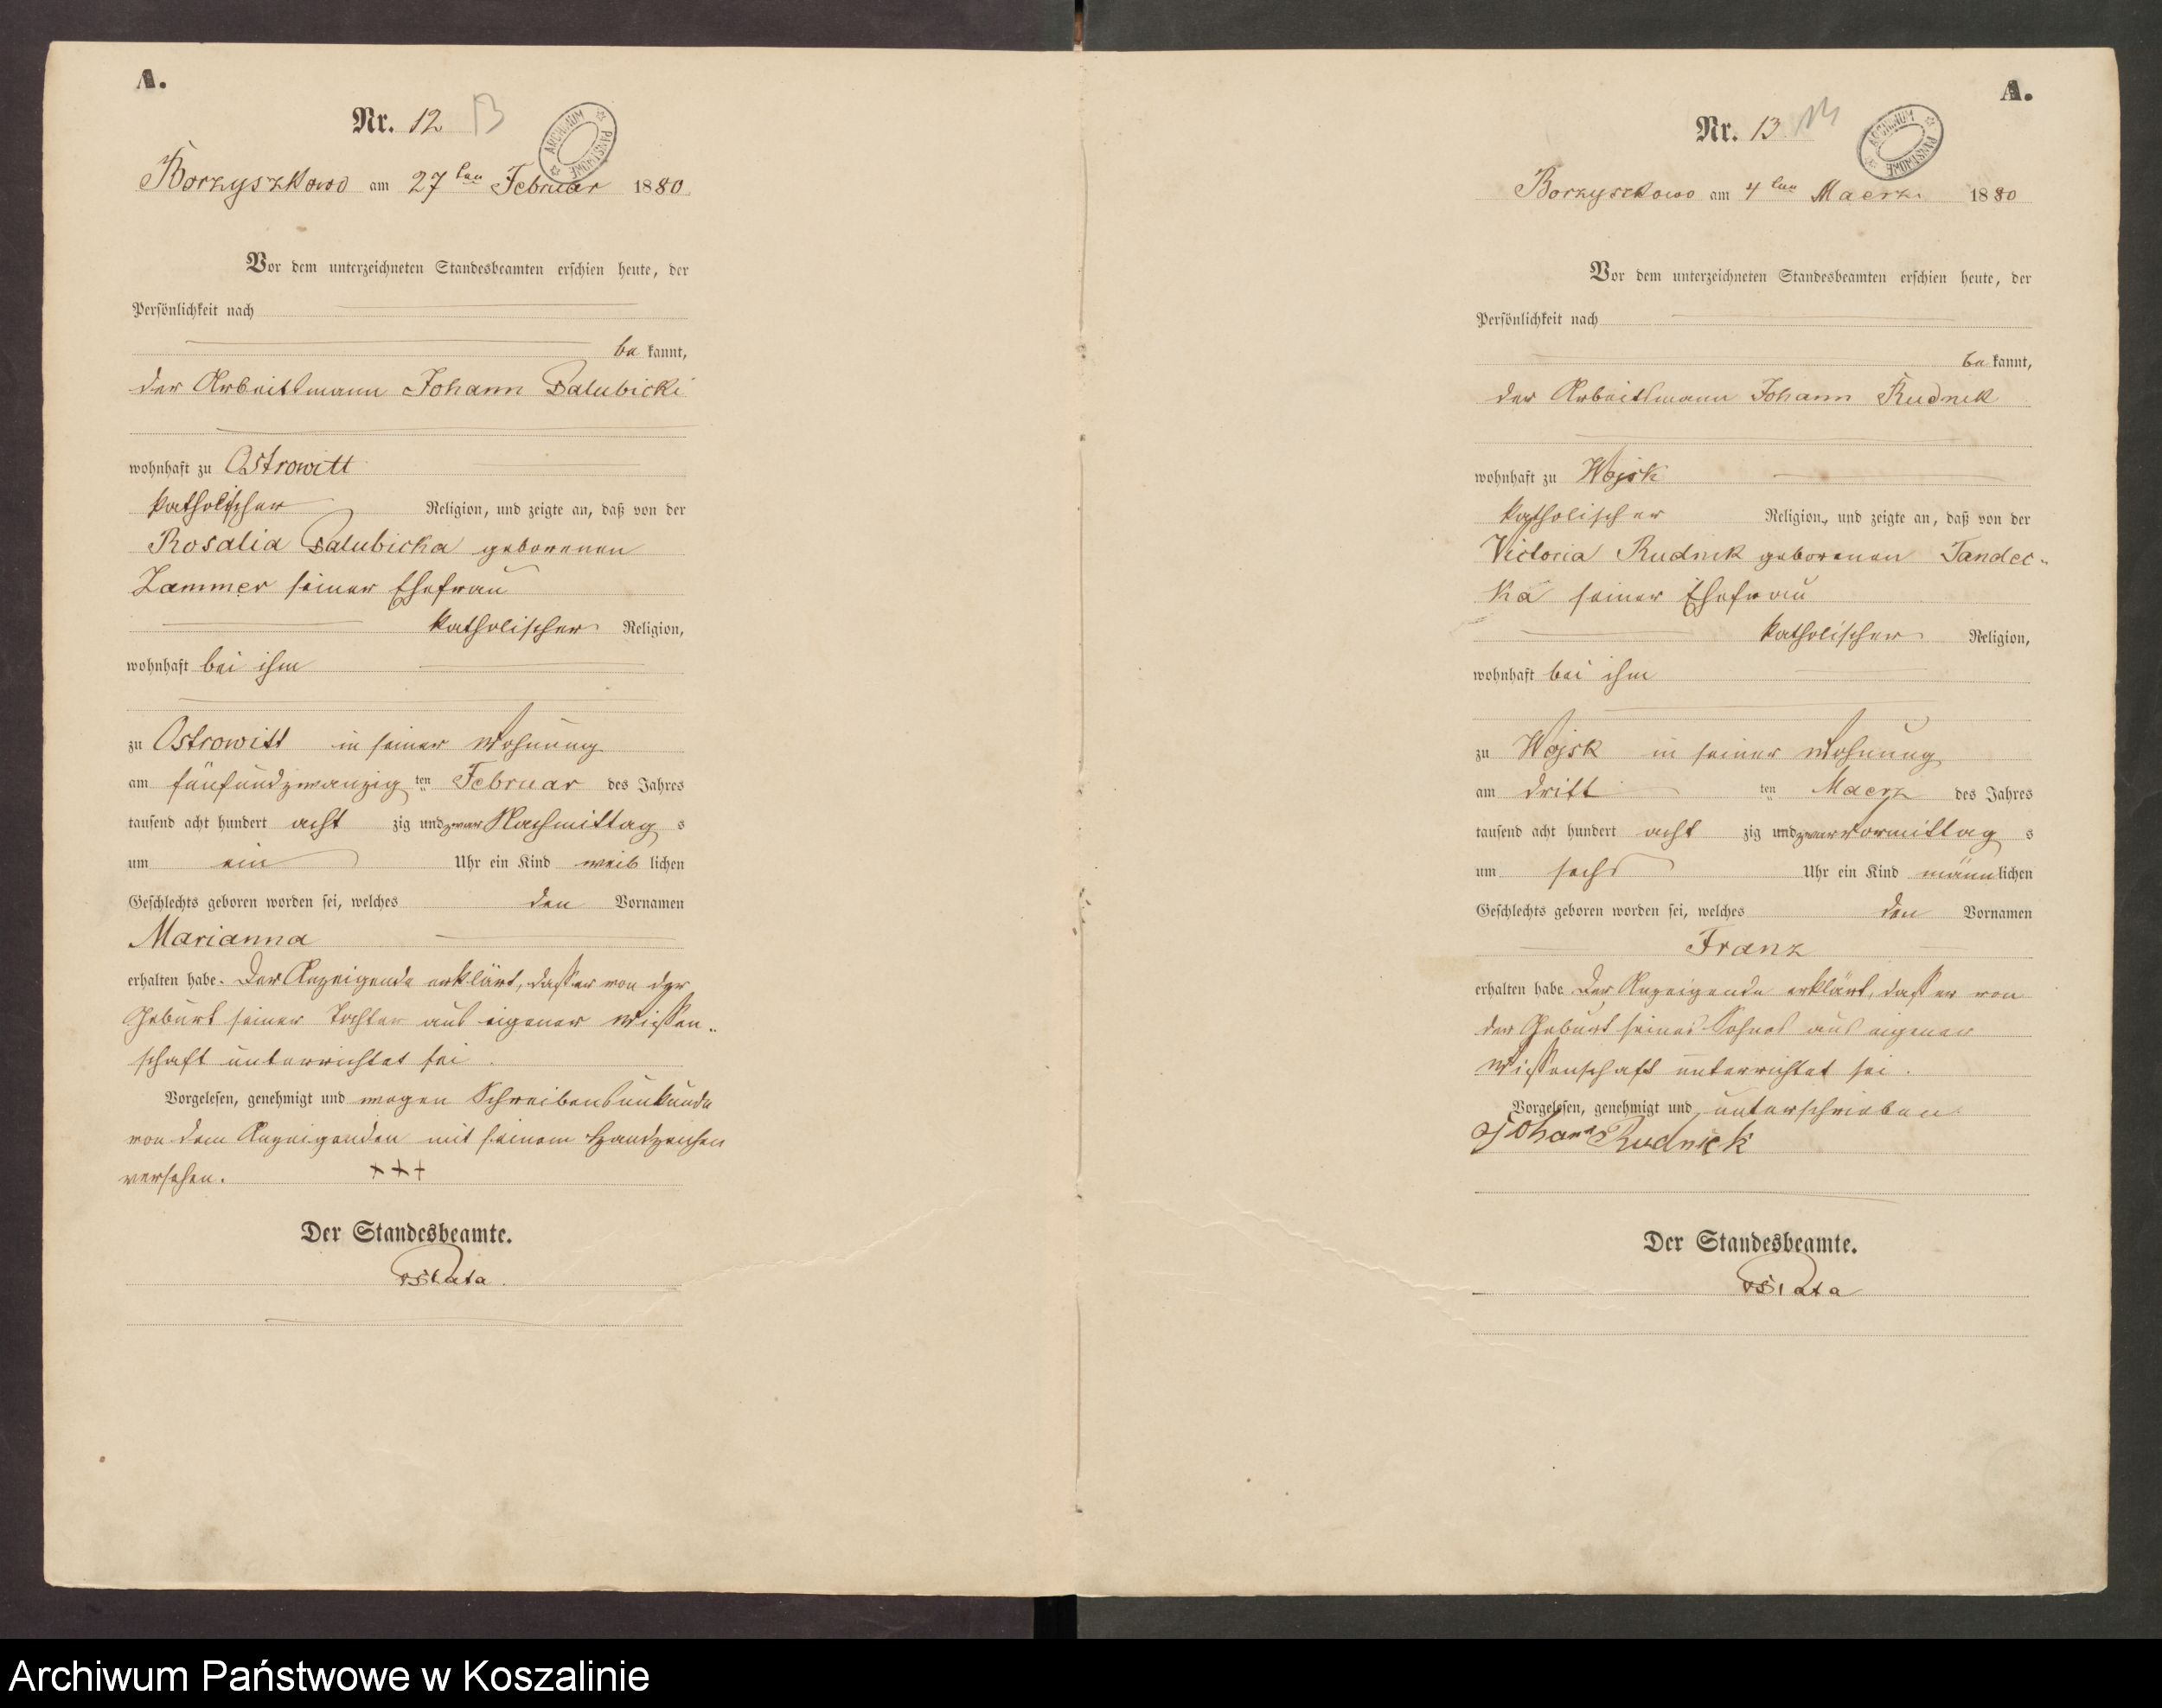 A.
Nr. 12 B
ARCHIWUM PAŃSTWOWE
Borzyszkowo am 27ten Februar 1880
Vor dem unterzeichneten Standesbeamten erschien heute, der
Persönlichkeit nach
be kannt,
der Arbeitsmann Johann Salubicki
wohnhaft zu Ostrowitt
katholischer Religion, und zeigte an, daß von der
Rosalia Salubicka geborenen
Zammer seiner Ehefrau
katholischer Religion,
wohnhaft bei ihm
zu Ostrowitt in seiner Wohnung
am fünfundzwanzig ten Februar des Jahres
tausend acht hundert acht zig und zwar Nachmittag s
um ein Uhr ein Kind weib lichen
Geschlechts geboren worden sei, welches den Vornamen
Marianna
erhalten habe. Der Anzeigende erklärt, daß er von der
Geburt seiner Tochter aus eigener Wissen-
schaft unterrichtet sei.
Vorgelesen, genehmigt und wegen Schreibensunkunde
von dem Anzeigenden mit seinem Handzeichen
versehen. +++
Der Standesbeamte.
A.
Nr. 13
ARCHIWUM PAŃSTWOWE
Borzyszkowo am 4ten Maerz 1880
Vor dem unterzeichneten Standesbeamten erschien heute, der
Persönlichkeit nach
be kannt,
der Arbeitsmann Johann Rudnik
wohnhaft zu Wojsk
katholischer Religion, und zeigte an, daß von der
Victoria Rudnik geborenen Tandec-
ka seiner Ehefrau
katholischer Religion,
wohnhaft bei ihm
zu Wojsk in seiner Wohnung
am dritt ten Maerz des Jahres
tausend acht hundert acht zig und zwar Vormittag s
um sechs Uhr ein Kind männ lichen
Geschlechts geboren worden sei, welches den Vornamen
Franz
erhalten habe Der Anzeigende erklärt, daß er von
der Geburt seines Sohnes aus eigener
Wissenschaft unterrichtet sei.
Vorgelesen, genehmigt und unterschrieben
Johann Rudnick
Der Standesbeamte.
Archiwum Państwowe w Koszalinie